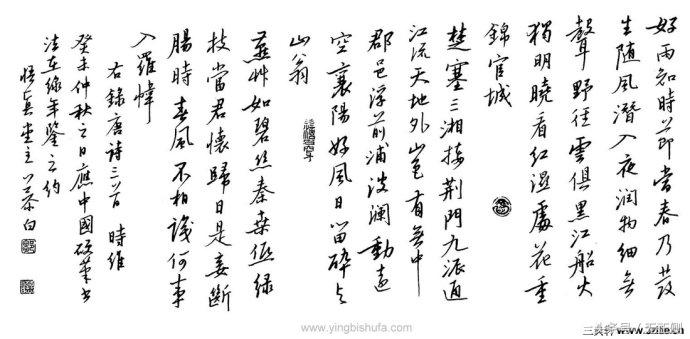 好雨知時節當春乃發
生随風潛入夜潤物細無
聲野徑雲俱黑江船火
獨明曉看紅濕處花重
錦官城
楚塞三湘接荆門九派通
江流天地外山色有無中
郡邑浮前浦波瀾動遠
空襄陽好風日留醉與
山翁
燕艸如碧丝秦桑低绿
枝當君懷歸日是妾斷
腸時春風不相識何事
入羅幃
右錄唐诗三首 時維
癸未仲秋之日應中國硬筆书
法在線年鉴之约
悟真堂主 慕白
www.yingbishufa.com
www.zzlte.cn